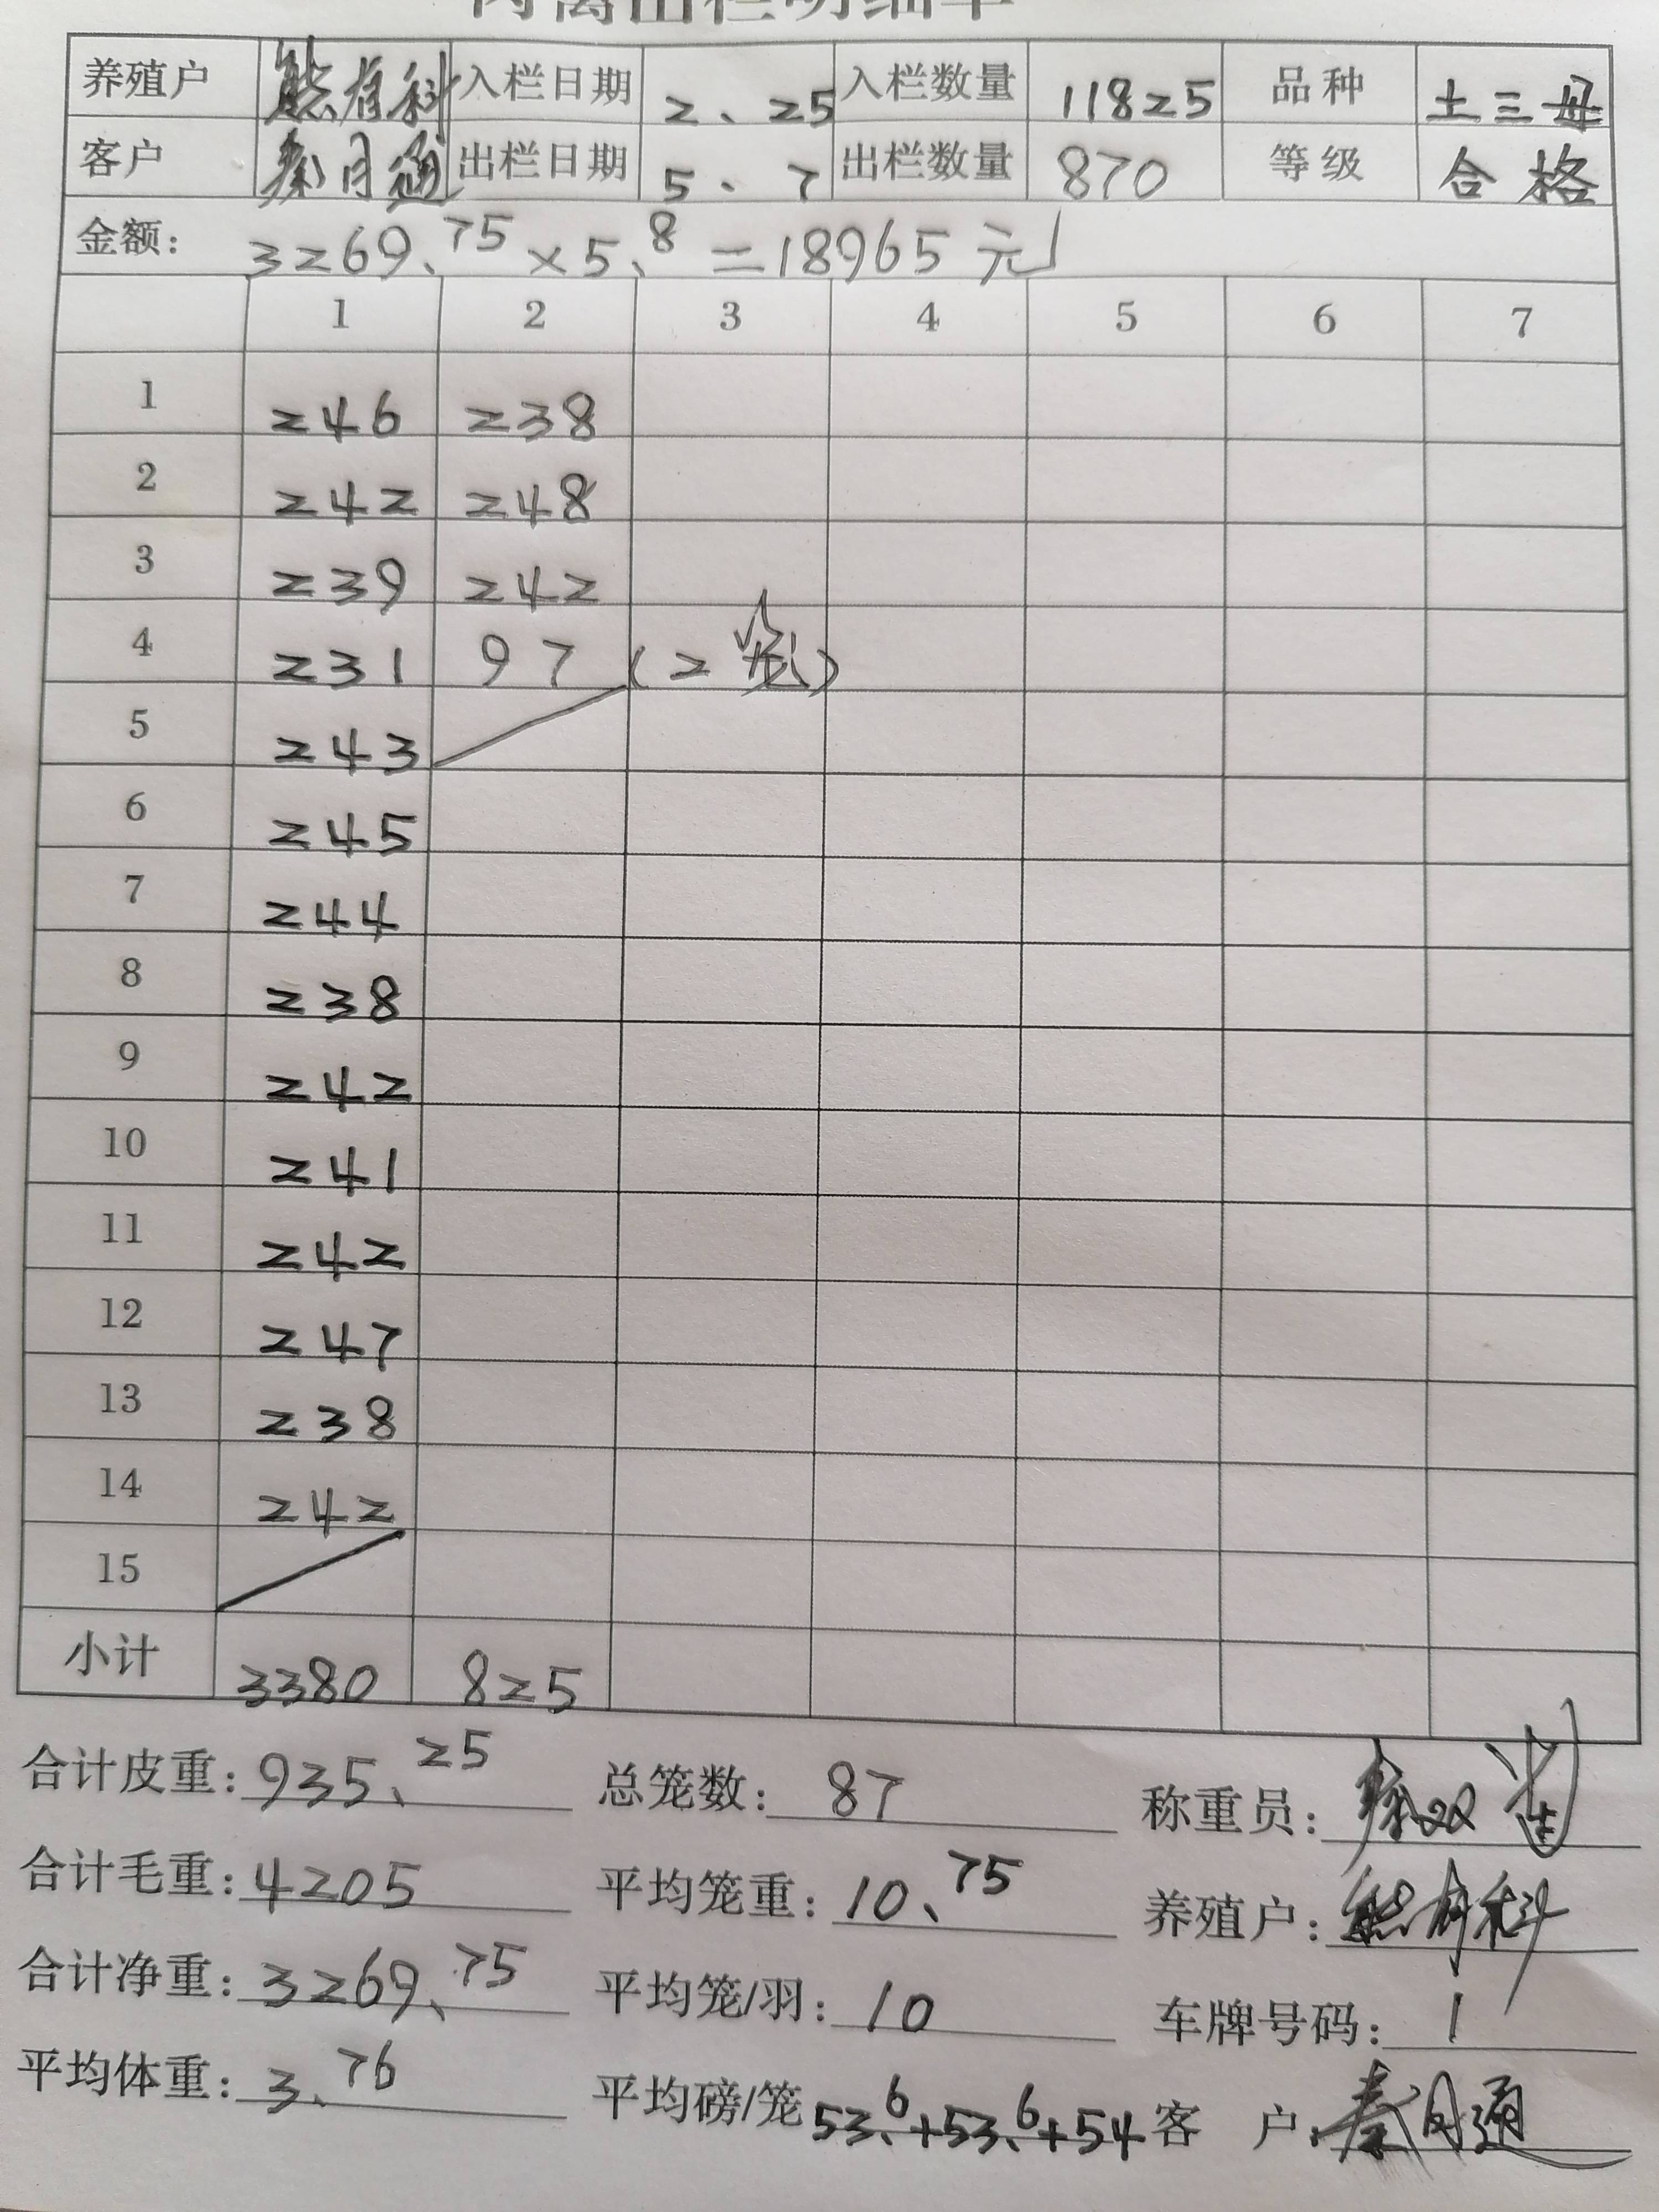 肉禽出栏明细单
养殖户 熊有科 入栏日期 2、25 入栏数量 11825 品种 土三母
客户 秦月通 出栏日期 5、7 出栏数量 870 等级 合格
金额: 3269、75 × 5、8 = 18965元
1 2 3 4 5 6 7
1 246 238
2 242 248
3 239 242
4 231 97 (2笼)
5 243
6 245
7 244
8 238
9 242
10 241
11 242
12 247
13 238
14 242
15
小计 3380 825
合计皮重: 935、25 总笼数: 87 称重员:
合计毛重: 4205 平均笼重: 10、75 养殖户: 熊有科
合计净重: 3269、75 平均笼/羽: 10 车牌号码: 1
平均体重: 3、76 平均磅/笼 53、6+53、6+54 客 户: 秦月通